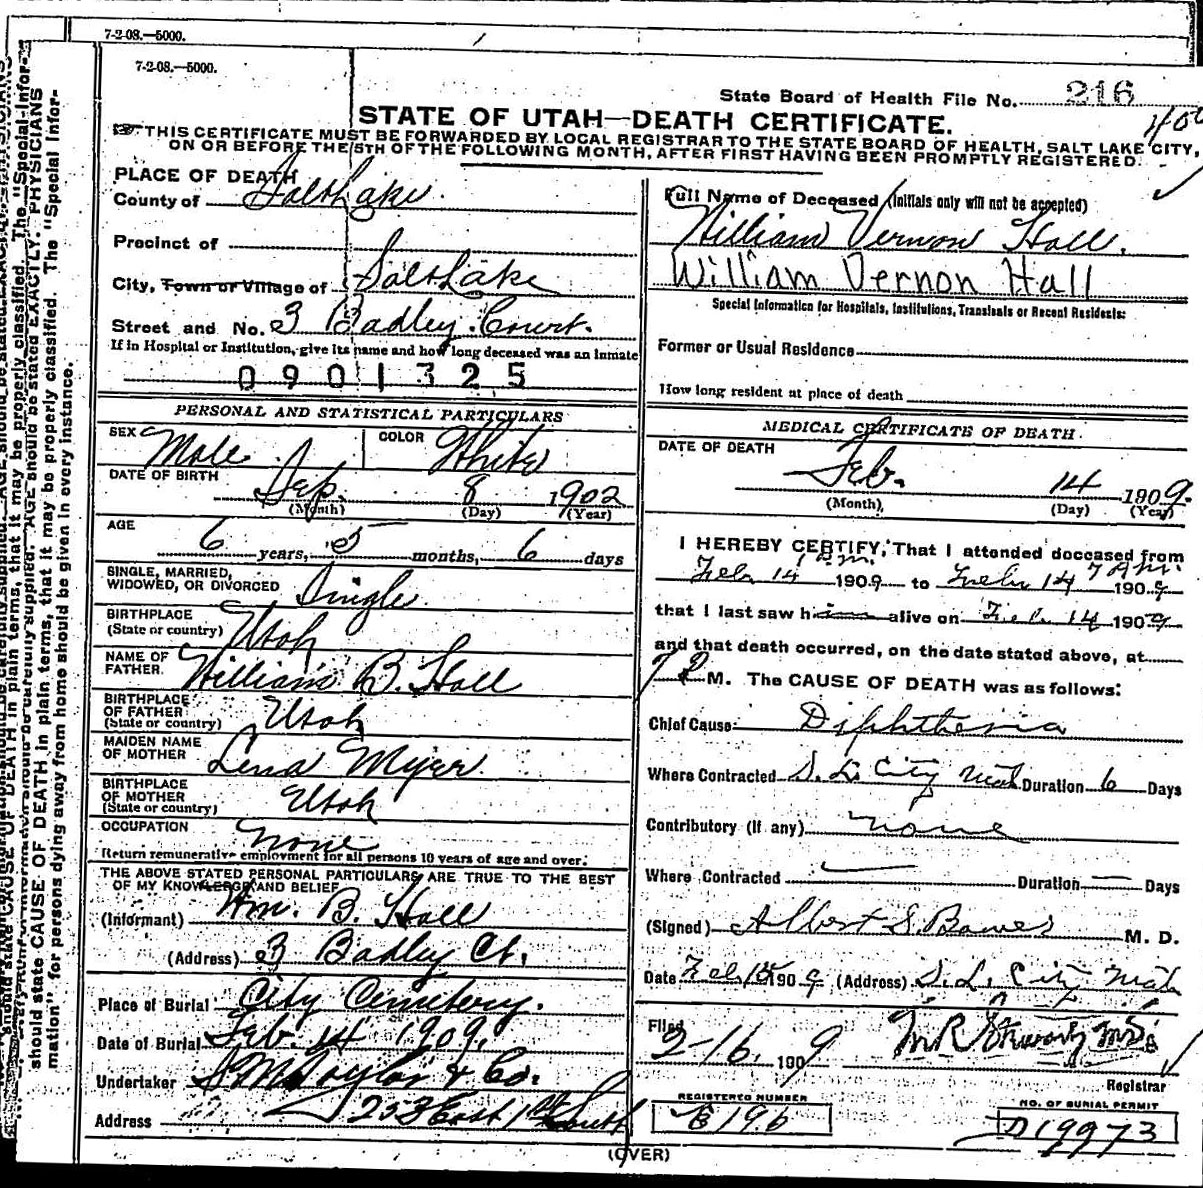 7-2-08.—5000.
7-2-08.—5000.
State Board of Health File No. 216
STATE OF UTAH—DEATH CERTIFICATE.
THIS CERTIFICATE MUST BE FORWARDED BY LOCAL REGISTRAR TO THE STATE BOARD OF HEALTH, SALT LAKE CITY,
ON OR BEFORE THE 5TH OF THE FOLLOWING MONTH, AFTER FIRST HAVING BEEN PROMPTLY REGISTERED.
PLACE OF DEATH
County of Salt Lake
Precinct of
City, Town or Village of Salt Lake
Street and No. 3 Badley Court.
If in Hospital or Institution, give its name and how long deceased was an inmate
0901325
PERSONAL AND STATISTICAL PARTICULARS
SEX Male
COLOR White
DATE OF BIRTH
Sep. 8 1902
(Month) (Day) (Year)
AGE
6 years, 5 months, 6 days
SINGLE, MARRIED,
WIDOWED, OR DIVORCED Single
BIRTHPLACE
(State or country) Utah
NAME OF
FATHER William B. Hall
BIRTHPLACE
OF FATHER
(State or country) Utah
MAIDEN NAME
OF MOTHER Lena Myer
BIRTHPLACE
OF MOTHER
(State or country) Utah
OCCUPATION None
Return remunerative employment for all persons 10 years of age and over.
THE ABOVE STATED PERSONAL PARTICULARS ARE TRUE TO THE BEST
OF MY KNOWLEDGE AND BELIEF
(Informant) Wm. B. Hall
(Address) 3 Badley Ct.
Place of Burial City Cemetery.
Date of Burial Feb. 14 1909.
Undertaker S M Taylor & Co.
Address 253 East 1st South
Full Name of Deceased (Initials only will not be accepted)
William Vernon Hall.
William Vernon Hall
Special Information for Hospitals, Institutions, Transients or Recent Residents:
Former or Usual Residence
How long resident at place of death
MEDICAL CERTIFICATE OF DEATH
DATE OF DEATH
Feb. 14 1909.
(Month) (Day) (Year)
I HEREBY CERTIFY, That I attended deceased from
Feb 14 1909 to Feb 14 1909
that I last saw him alive on Feb 14 1909
and that death occurred, on the date stated above, at
7 P M. The CAUSE OF DEATH was as follows:
Chief Cause: Diphtheria
Where Contracted S. L. City Utah Duration 6 Days
Contributory (If any) none
Where Contracted — Duration — Days
(Signed) Albert S. Bower M. D.
Date Feb 15 1909 (Address) S. L. City Utah
Filed
2-16. 1909
Registrar
REGISTERED NUMBER
E 196
NO. OF BURIAL PERMIT
D19973
(OVER)
should state CAUSE OF DEATH in plain terms, that it may be properly classified. The "Special Infor-
mation" for persons dying away from home should be given in every instance.